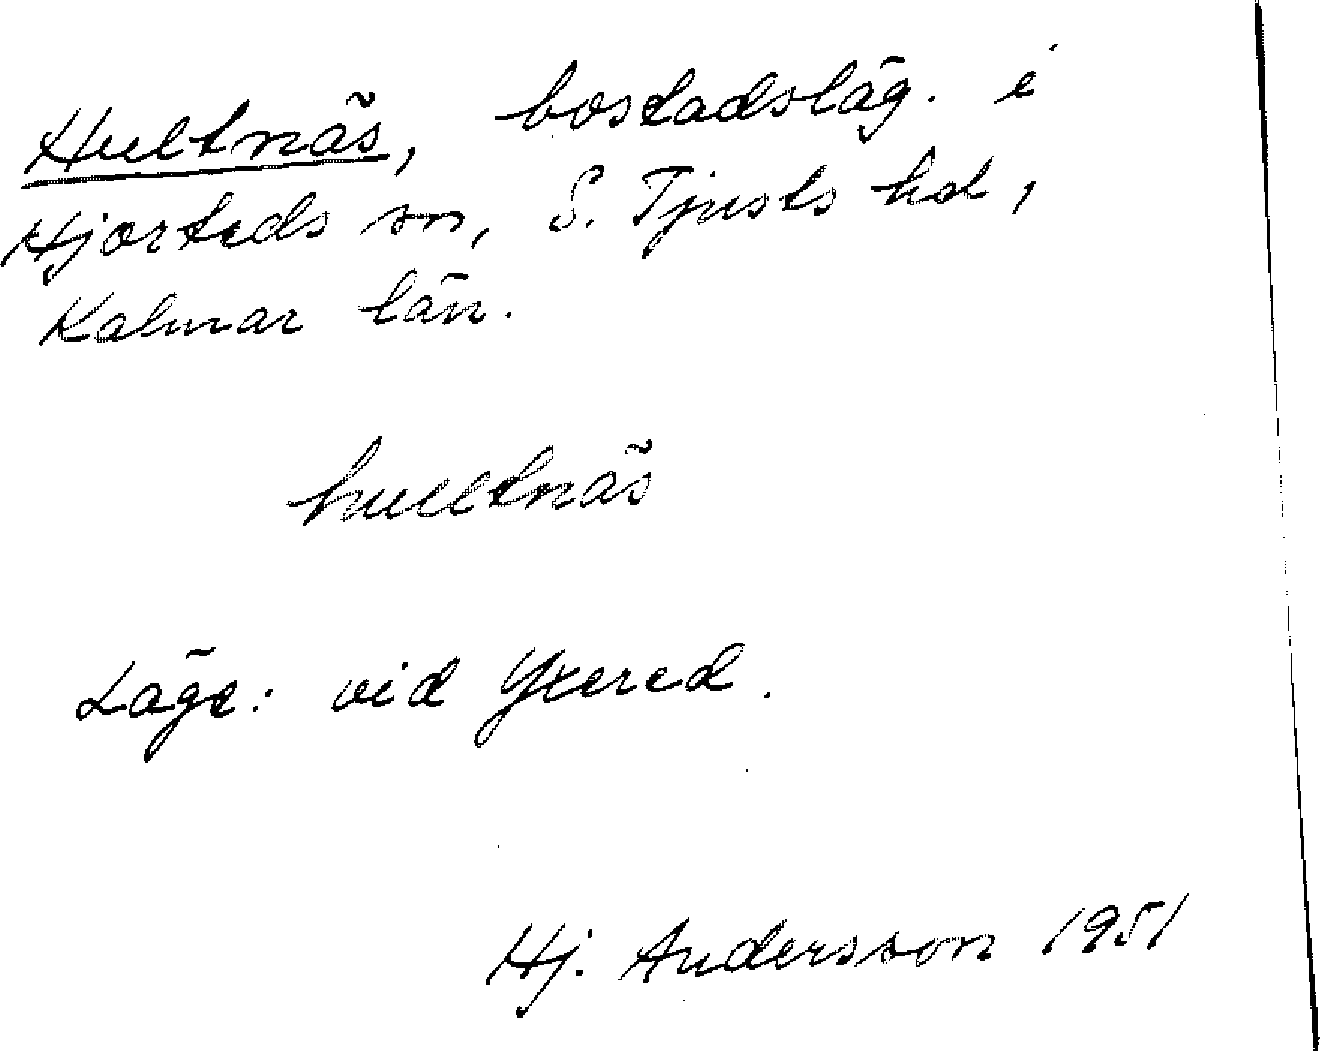 Hultnäs, bostadsläg. i
Hjorteds sn, S. Tjusts hd,
Kalmar län.
hulltnäs
Läge: vid Yxered.
Hj. Andersson 1951